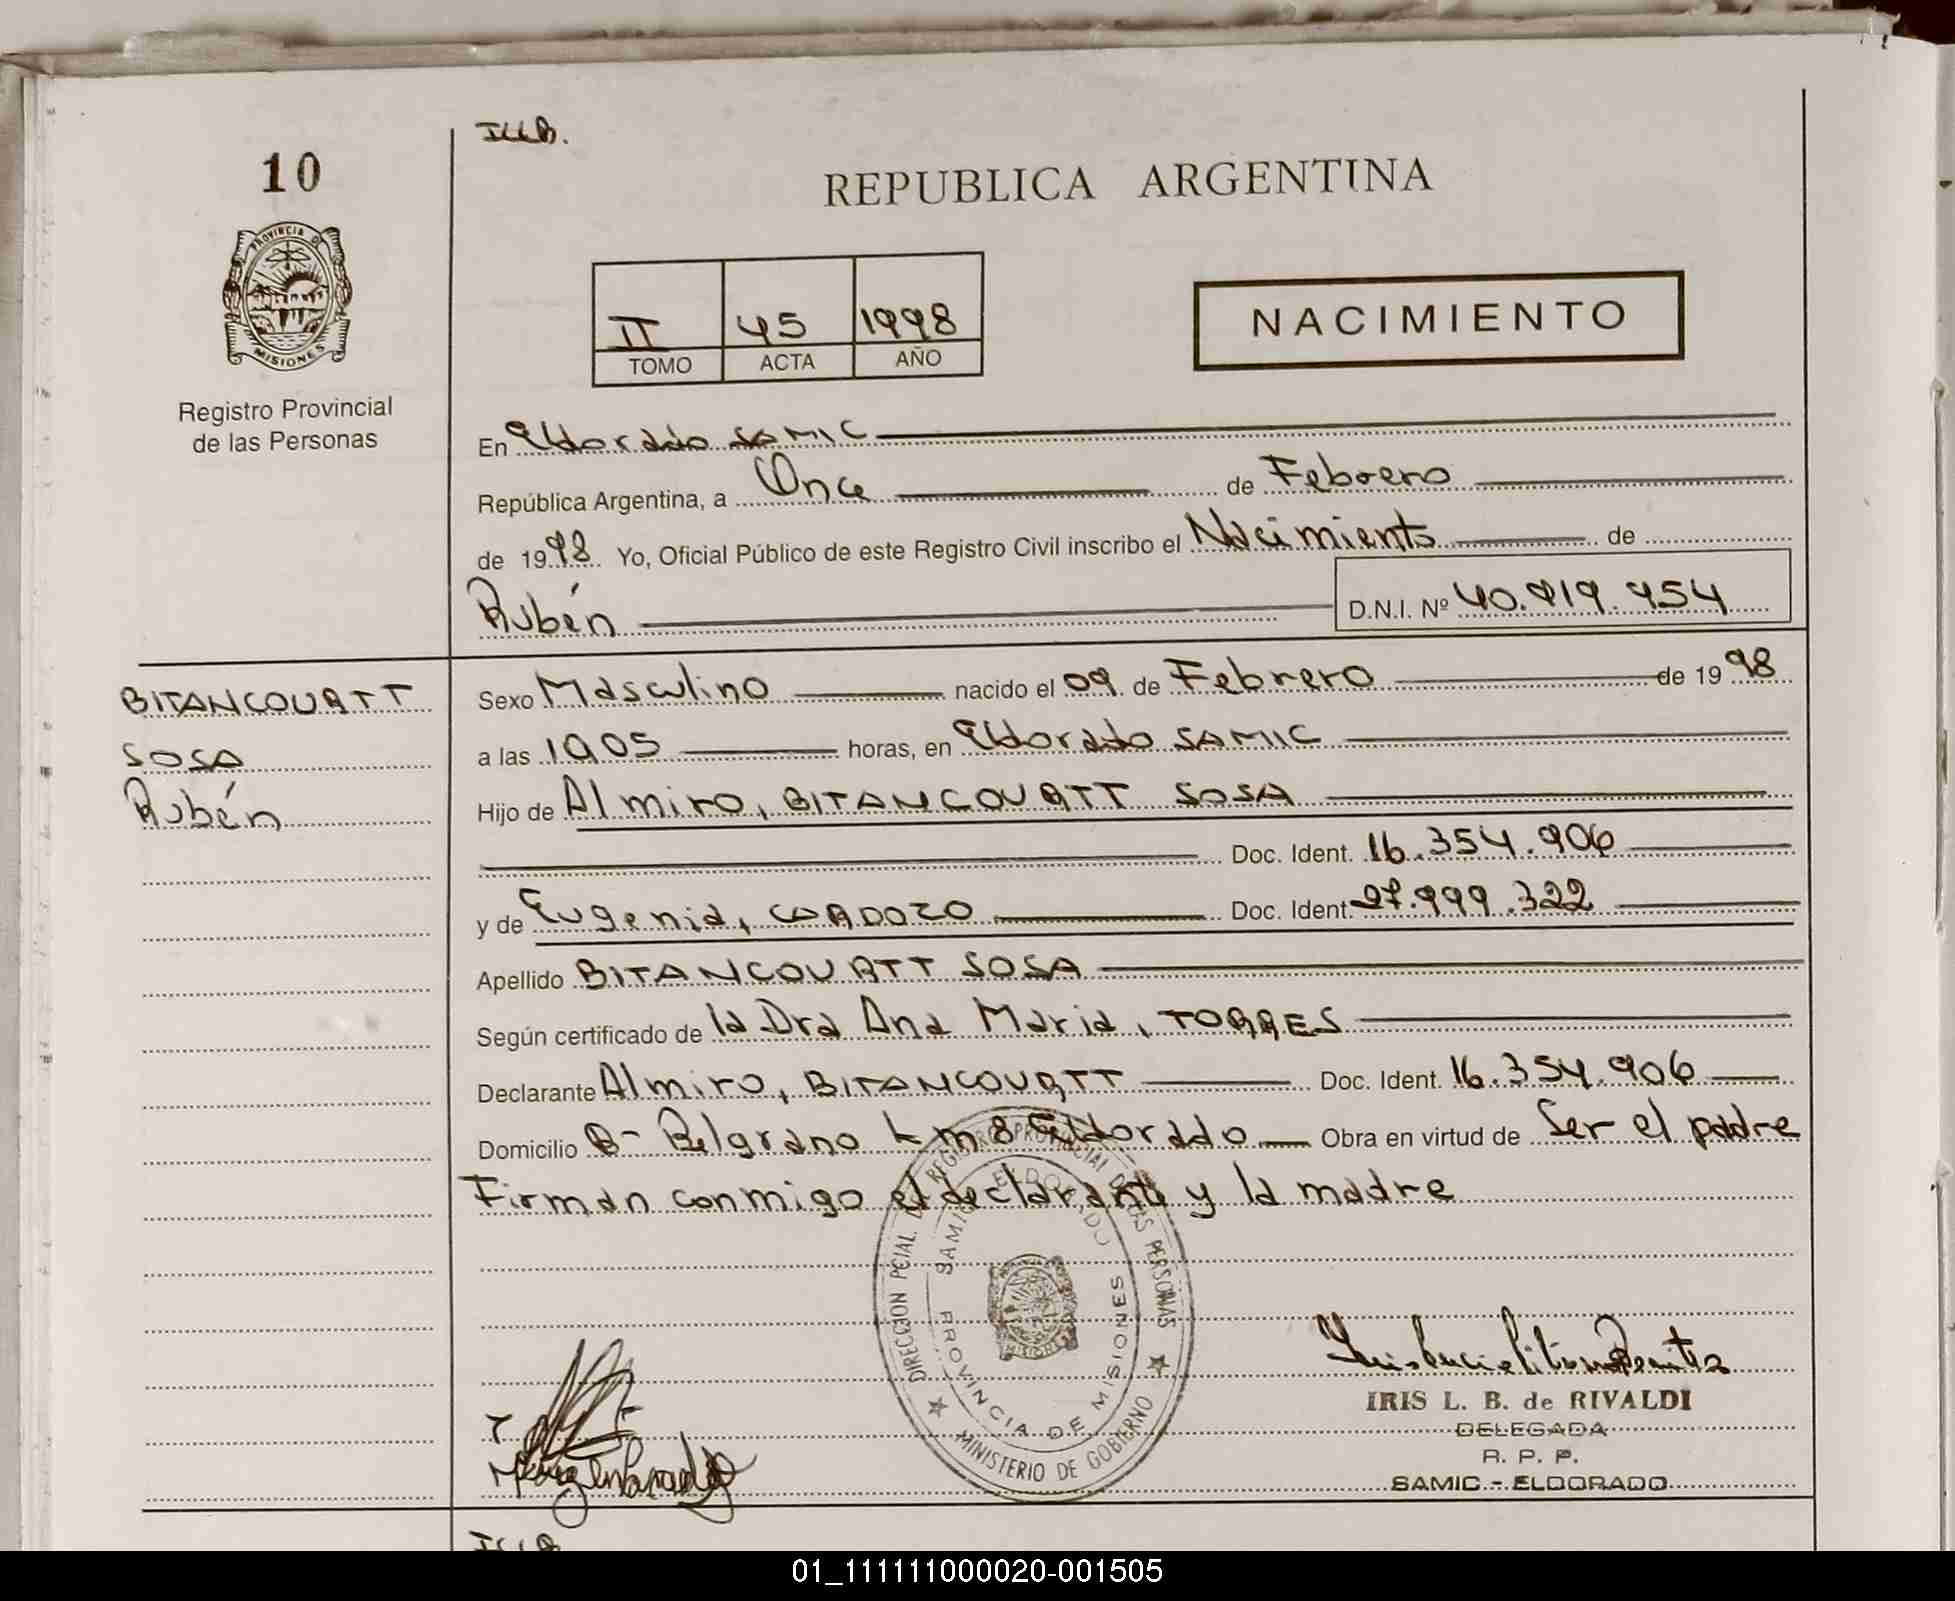 ILLB.
10
REPUBLICA ARGENTINA
PROVINCIA DE
MISIONES
II 45 1998
TOMO ACTA AÑO
NACIMIENTO
Registro Provincial
de las Personas
En Eldorado SAMIC
República Argentina, a Once de Febrero
de 1998 Yo, Oficial Público de este Registro Civil inscribo el Nacimiento de
Rubén D.N.I. Nº 40.919.954
BITANCOURTT
SOSA
Rubén
Sexo Masculino nacido el 09 de Febrero de 1998
a las 1905 horas, en Eldorado SAMIC
Hijo de Almiro, BITANCOURTT SOSA
Doc. Ident. 16.354.906
y de Eugenia, CARDOZO Doc. Ident. 27.999.322
Apellido BITANCOURTT SOSA
Según certificado de la Dra Ana Maria, TORRES
Declarante Almiro, BITANCOURTT Doc. Ident. 16.354.906
Domicilio Bº Belgrano km 8 Eldorado Obra en virtud de Ser el padre
Firman conmigo el declarante y la madre
DIRECCION PCIAL. DEL REGISTRO PROVINCIAL DE LAS PERSONAS
SAMIC ELDORADO
PROVINCIA DE MISIONES
MISIONES
MINISTERIO DE GOBIERNO
IRIS L. B. de RIVALDI
DELEGADA
R. P. P.
SAMIC - ELDORADO
01_111111000020-001505